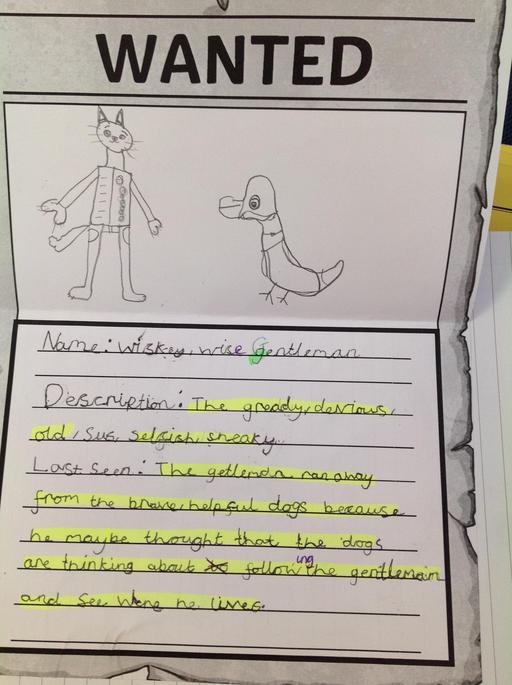 WANTED
Name: wiskey, wise gentleman
Description: The gready, devious,
old, sus, selfish, sneaky.
Last seen: The getleman ran away
from the brave, helpful dogs because
he maybe thought that the dogs
are thinking about following the gentlemain
and see where he lives.